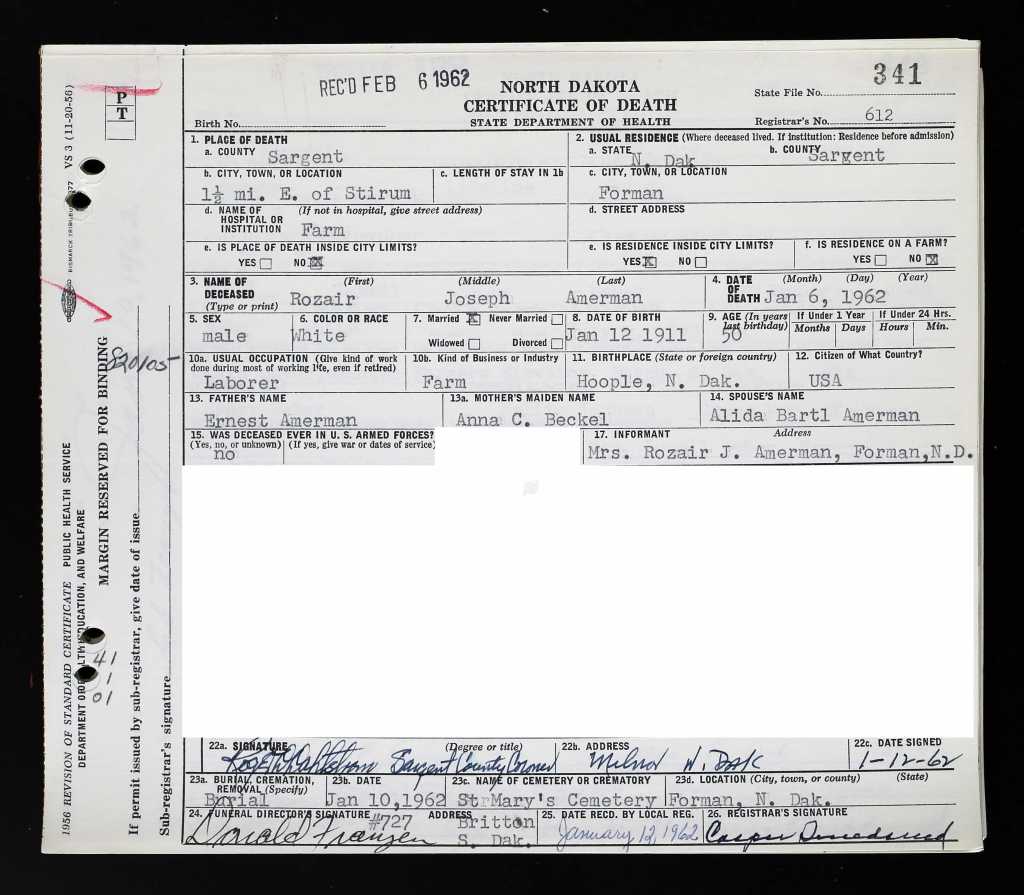 REC'D FEB 6 1962
341
NORTH DAKOTA
CERTIFICATE OF DEATH
STATE DEPARTMENT OF HEALTH
State File No.
Birth No.
Registrar's No. 612
1. PLACE OF DEATH
a. COUNTY Sargent
2. USUAL RESIDENCE (Where deceased lived. If institution: Residence before admission)
a. STATE N. Dak b. COUNTY Sargent
b. CITY, TOWN, OR LOCATION
1½ mi. E. of Stirum
c. LENGTH OF STAY IN 1b
c. CITY, TOWN, OR LOCATION
Forman
d. NAME OF HOSPITAL OR INSTITUTION (If not in hospital, give street address)
Farm
d. STREET ADDRESS
e. IS PLACE OF DEATH INSIDE CITY LIMITS?
YES NO X
e. IS RESIDENCE INSIDE CITY LIMITS?
YES X NO
f. IS RESIDENCE ON A FARM?
YES NO X
3. NAME OF DECEASED (Type or print)
(First) (Middle) (Last)
Rozair Joseph Amerman
4. DATE OF DEATH (Month) (Day) (Year)
Jan 6, 1962
5. SEX
male
6. COLOR OR RACE
White
7. Married X Never Married
Widowed Divorced
8. DATE OF BIRTH
Jan 12 1911
9. AGE (In years last birthday)
50
If Under 1 Year If Under 24 Hrs.
Months Days Hours Min.
10a. USUAL OCCUPATION (Give kind of work done during most of working life, even if retired)
Laborer
10b. Kind of Business or Industry
Farm
11. BIRTHPLACE (State or foreign country)
Hoople, N. Dak.
12. Citizen of What Country?
USA
13. FATHER'S NAME
Ernest Amerman
13a. MOTHER'S MAIDEN NAME
Anna C. Beckel
14. SPOUSE'S NAME
Alida Bartl Amerman
15. WAS DECEASED EVER IN U. S. ARMED FORCES?
(Yes, no, or unknown) (If yes, give war or dates of service)
no
17. INFORMANT Address
Mrs. Rozair J. Amerman, Forman, N.D.
22a. SIGNATURE (Degree or title)
Sargent County Coroner
22b. ADDRESS
Milnor N. Dak
22c. DATE SIGNED
1-12-62
23a. BURIAL, CREMATION, REMOVAL (Specify)
Burial
23b. DATE
Jan 10, 1962
23c. NAME OF CEMETERY OR CREMATORY
St Mary's Cemetery
23d. LOCATION (City, town, or county) (State)
Forman, N. Dak.
24. FUNERAL DIRECTOR'S SIGNATURE ADDRESS
Donald Franzen #727 Britton
S. Dak.
25. DATE RECD. BY LOCAL REG.
January 12, 1962
26. REGISTRAR'S SIGNATURE
P
T
VS 3 (11-20-56)
MARGIN RESERVED FOR BINDING
820105
1956 REVISION OF STANDARD CERTIFICATE PUBLIC HEALTH SERVICE
DEPARTMENT OF HEALTH, EDUCATION, AND WELFARE
If permit issued by sub-registrar, give date of issue
Sub-registrar's signature
41
1
01